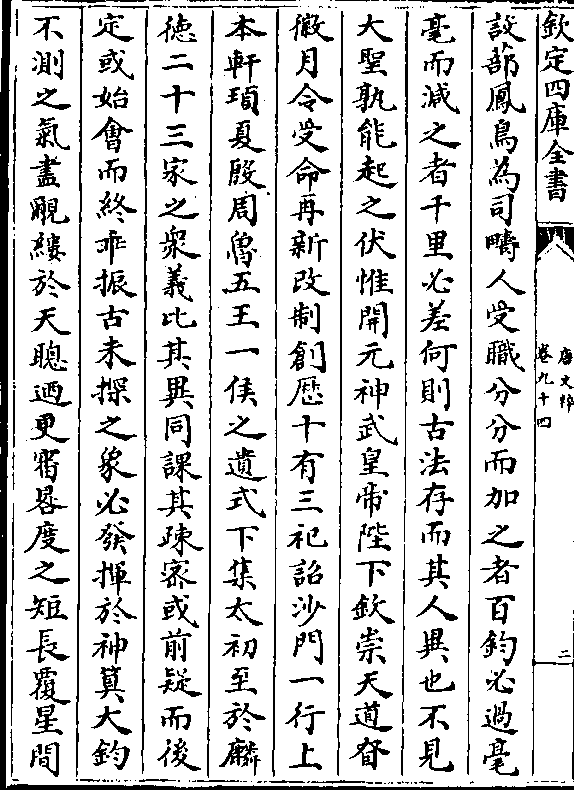 欽定四庫全書
唐文粹
卷九十四
二
設蔀鳳鳥為司疇人受職分分而加之者百鈞必過毫
毫而減之者千里必差何則古法存而其人異也不見
大聖孰能起之伏惟開元神武皇帝陛下欽崇天道眘
徽月令受命再新改制創厯十有三祀詔沙門一行上
本軒頊夏殷周魯五王一侯之遺式下集太初至於麟
徳二十三家之衆義比其異同課其疎密或前疑而後
定或始會而終乖振古未探之象必發揮於神筭大鈞
不測之氣盡覼縷於天聰迺更審晷度之短長覆星間